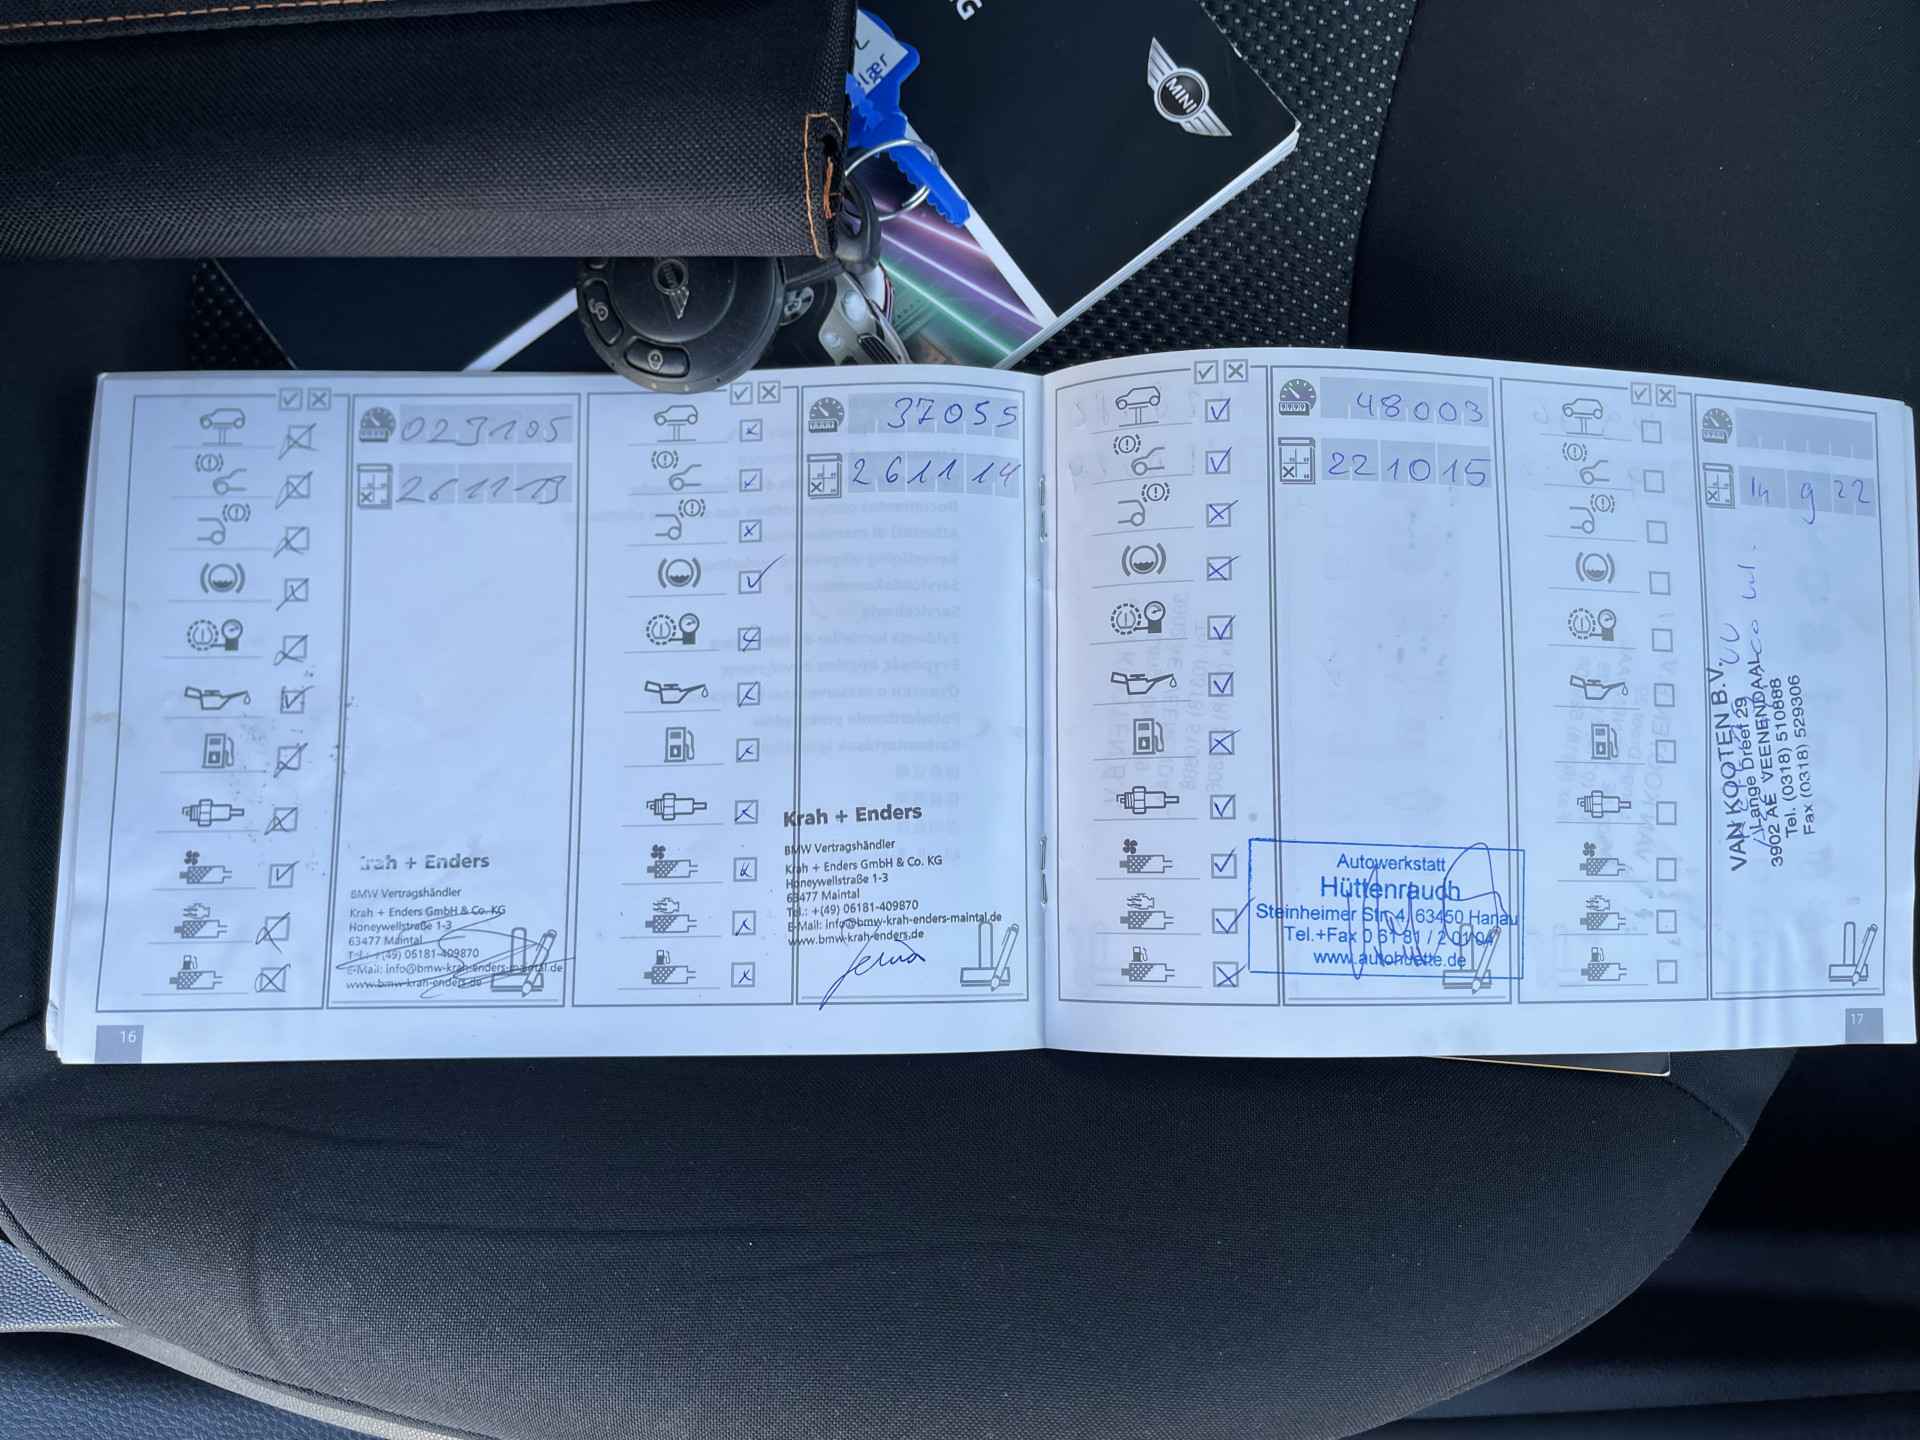 MINI
023105
261113
Krah + Enders
BMW Vertragshändler
Krah + Enders GmbH & Co. KG
Honeywellstraße 1-3
63477 Maintal
Tel.: +(49) 06181-409870
E-Mail: info@bmw-krah-enders-maintal.de
www.bmw-krah-enders.de
16
37055
261114
Krah + Enders
BMW Vertragshändler
Krah + Enders GmbH & Co. KG
Honeywellstraße 1-3
63477 Maintal
Tel.: +(49) 06181-409870
E-Mail: info@bmw-krah-enders-maintal.de
www.bmw-krah-enders.de
48003
221015
Autowerkstatt
Hüttenrauch
Steinheimer Str. 4, 63450 Hanau
Tel.+Fax 0 61 81 / 2 01 04
www.autohuette.de
9 22
VAN KOOTEN B.V.
Lange Dreef 29
3902 AE VEENENDAAL
Tel. (0318) 510888
Fax (0318) 529306
17